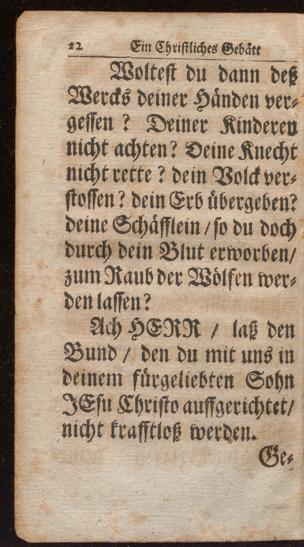 22 Ein Christliches Gebätt
Woltest du dann deß
Wercks deiner Händen ver-
gessen ? Deiner Kinderen
nicht achten? Deine Knecht
nicht rette ? dein Volck ver-
stossen ? dein Erb übergeben?
deine Schäfflein / so du doch
durch dein Blut erworben/
zum Raub der Wölfen wer-
den lassen?
Ach HERR / laß den
Bund / den du mit uns in
deinem fürgeliebten Sohn
JEsu Christo auffgerichtet/
nicht krafftloß werden.
Ge-